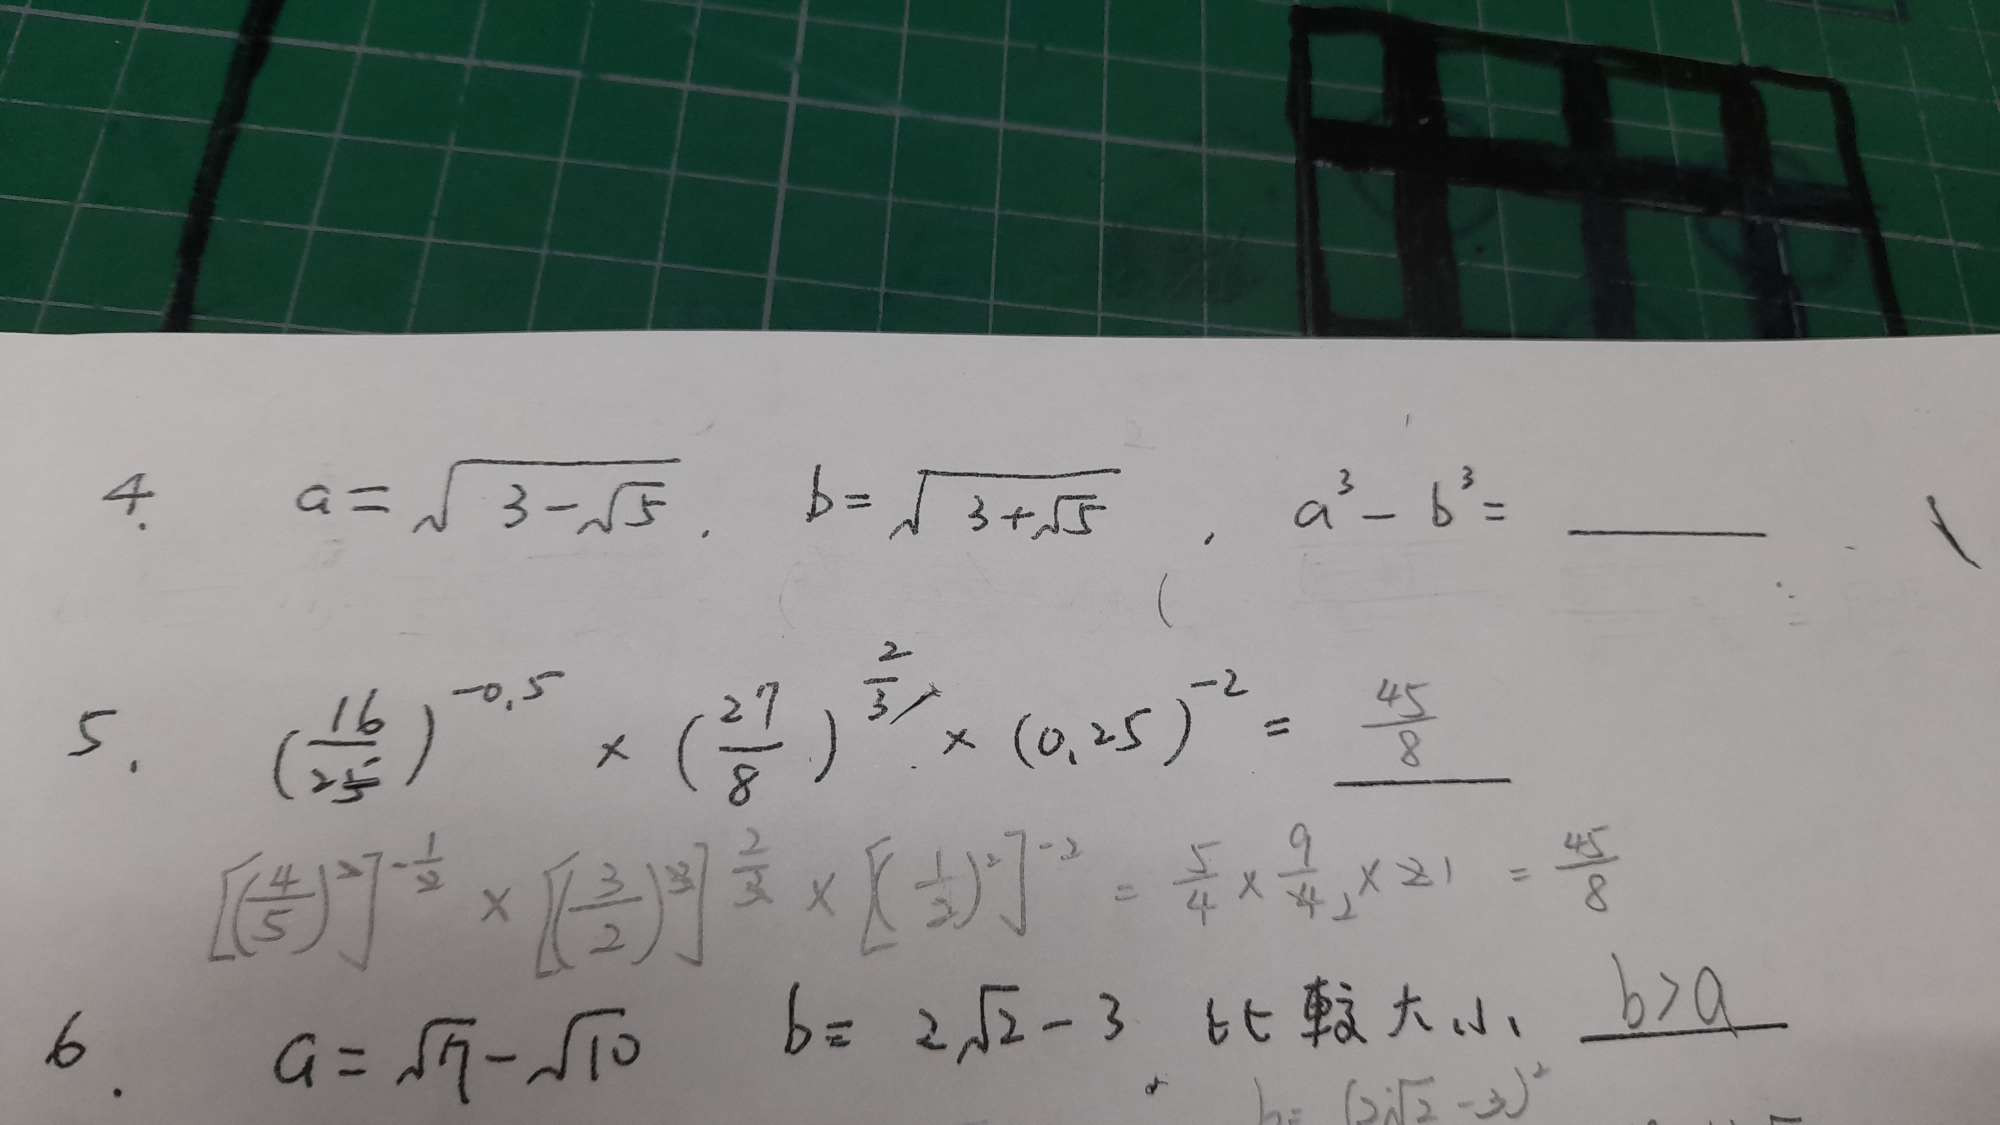 4. a = √(3-√5) , b = √(3+√5) , a³ - b³ = ____
5. (16/25)^-0.5 × (27/8)^(2/3) × (0.25)^-2 = 45/8
[(4/5)²]^(-1/2) × [(3/2)³]^(2/3) × [(1/2)²]^-2 = 5/4 × 9/4 2 × 21 = 45/8
6. a = √7 - √10 b = 2√2 - 3 比較大小、 b>a
b = (2√2 - 3)²